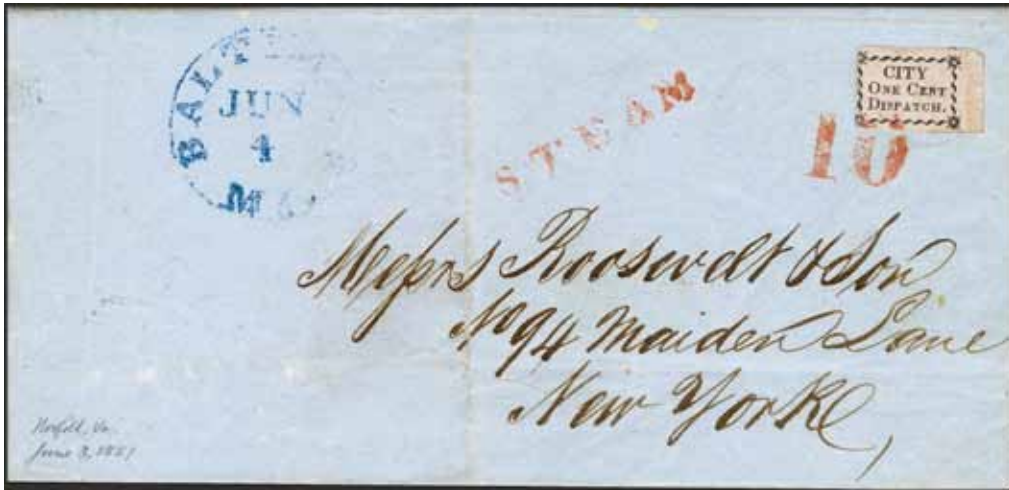 BALT
JUN
4
Md.
STEAM
CITY
ONE CENT
DISPATCH.
10
Messrs Roosevelt & Son
No 94 Maiden Lane
New York,
Norfolk, Va.
June 3, 1851